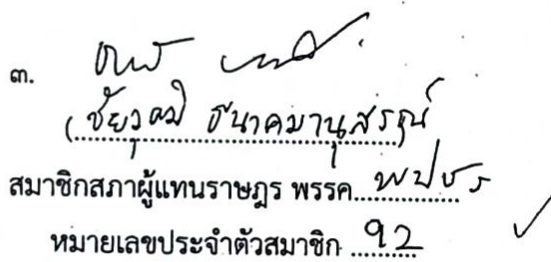 ๓.
(ชัยวุฒิ ธนาคมานุสรณ์)
สมาชิกสภาผู้แทนราษฎร พรรค พปชร
หมายเลขประจำตัวสมาชิก ๙๒